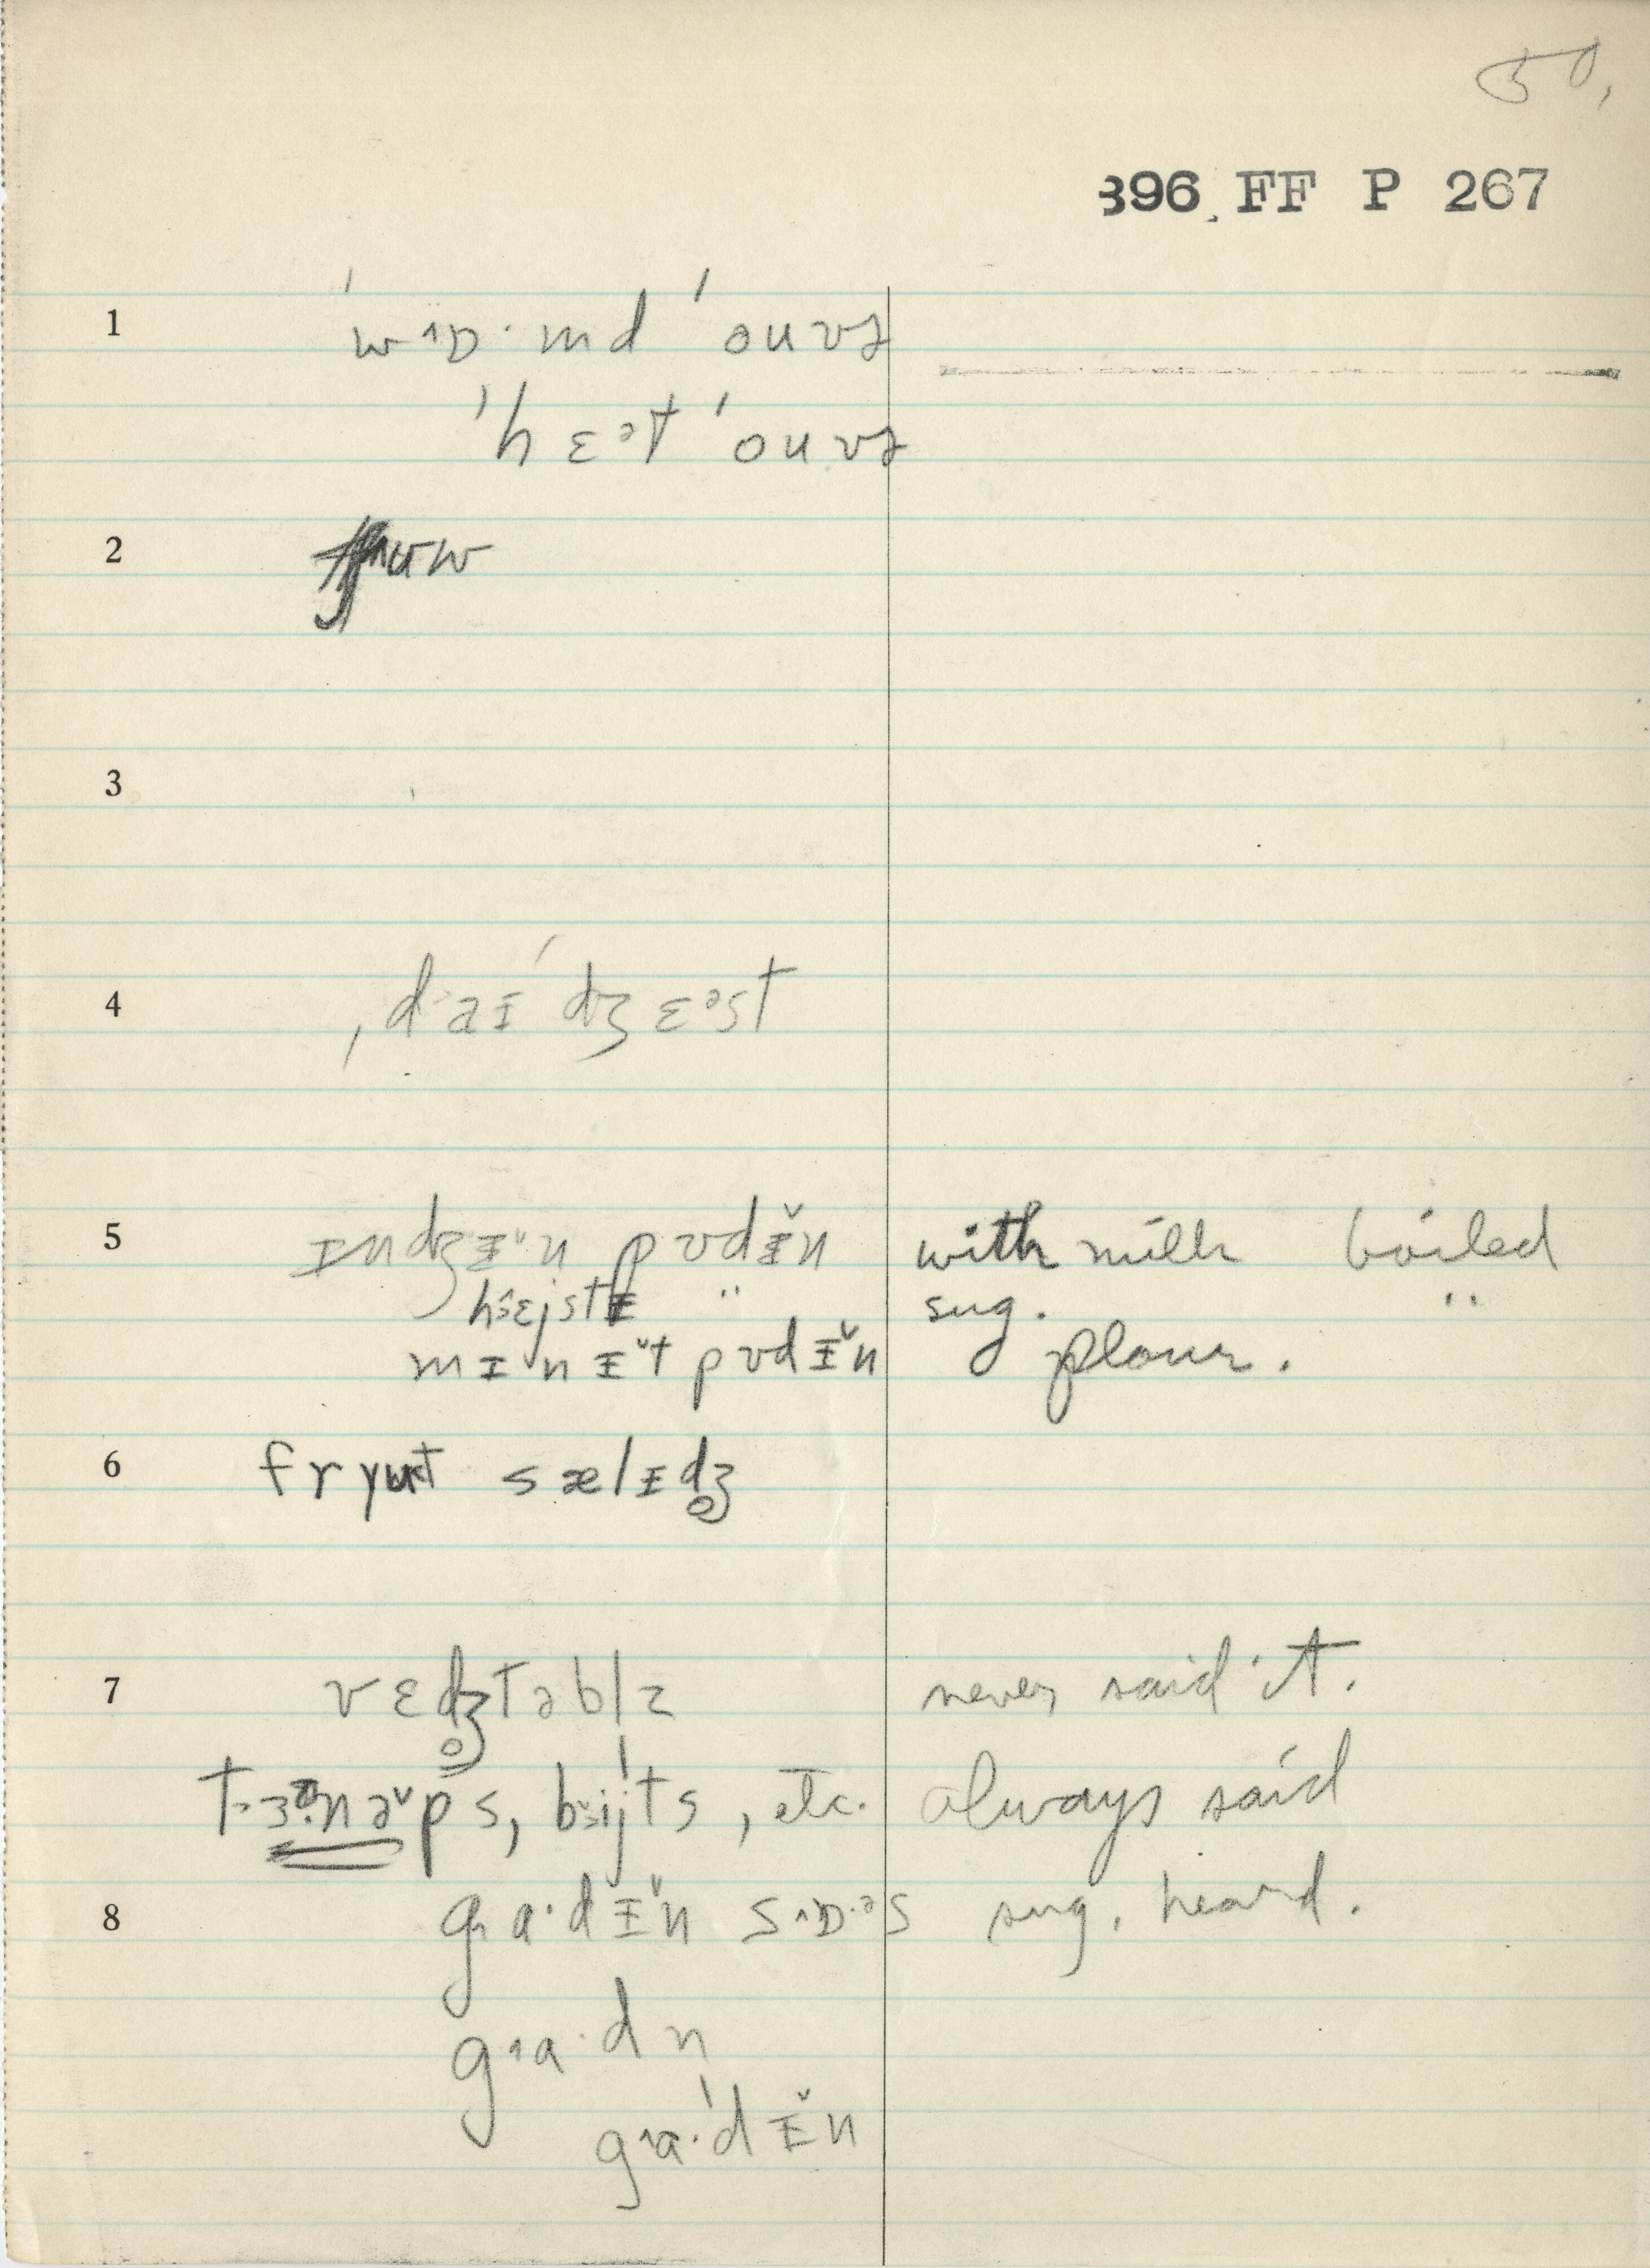 50,
396 FF P 267
1 ˈwɒ·md ˈouvɚ
ˈhɛᵊt ˈouvɚ
2
3
4 ˌdaɪˈdʒɛᵊst
5 ɪndʒɪ̆n pʊdɪ̆n with milk boiled
hɛjstɪ " sug. "
mɪnɪ̆t pʊdɪ̆n flour.
6 fryut sælɪdʒ̥
7 vɛdʒ̥təblz never said it.
tɜ·nə̆ps, bijts, etc. always said
8 ga·dɪ̆n sɒ·ᵊs sug. heard.
ga·dn
ga·dɪ̆n